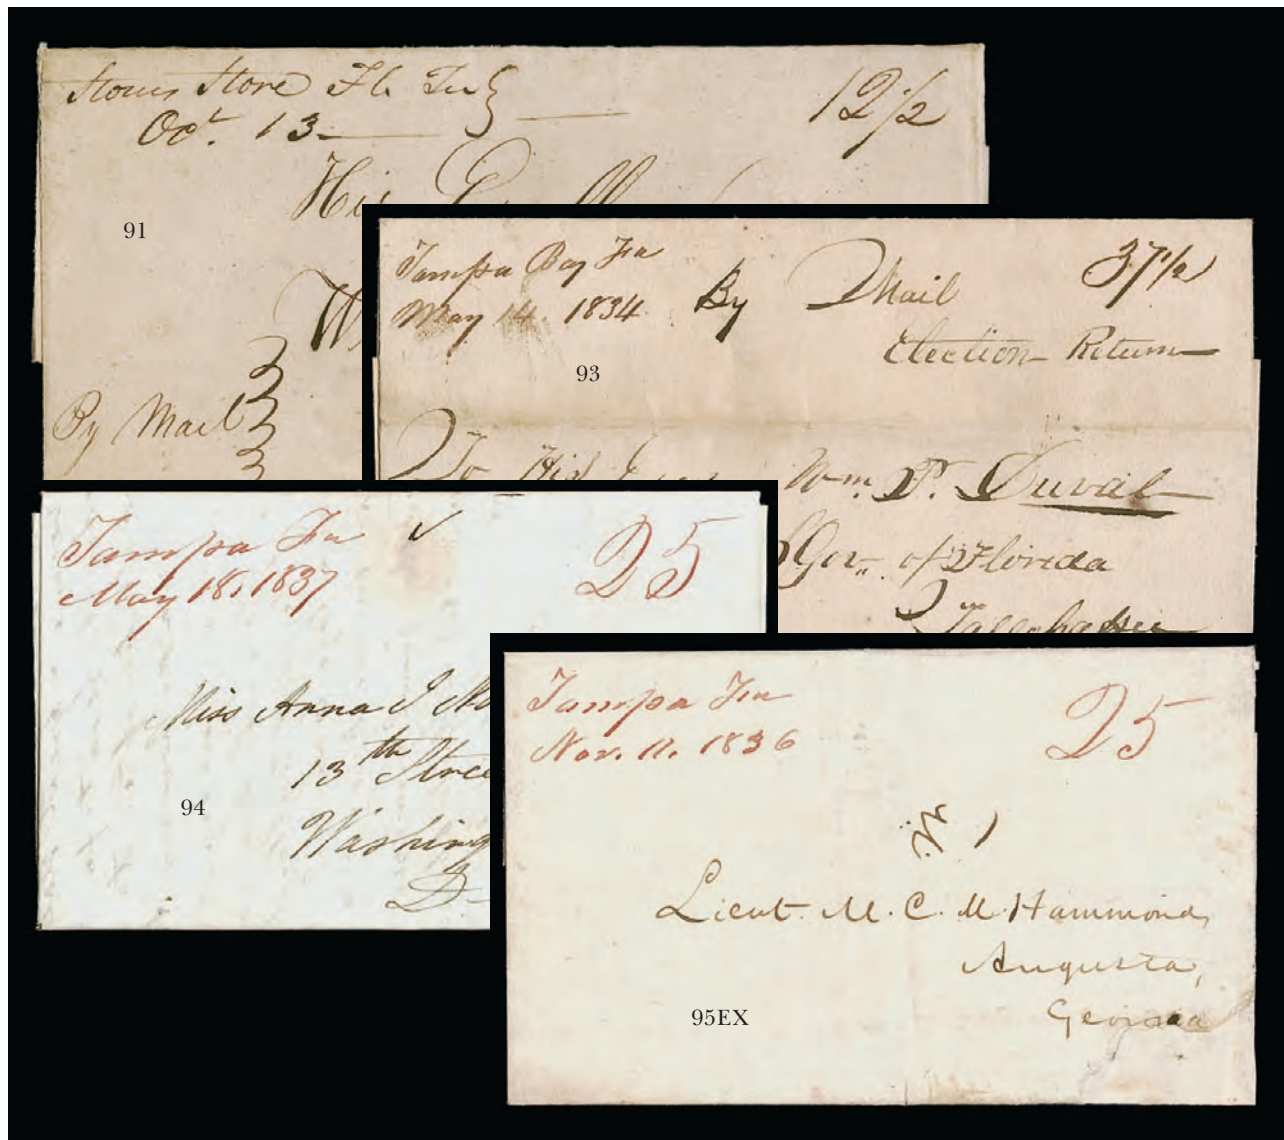 Store Fl. Ter
Oct. 13
12 1/2
His
91
By Mail
Tampa Bay Fa
May 14. 1834
By Mail
37 1/2
Election Return
93
To His
Wm. P. Duval
Gov. of Florida
Tallahassee
Tampa Fa
May 18, 1837
25
Miss Anna J
13th Stree
Washing
D
94
Tampa Fa
Nov. 11. 1836
25
Lieut. M. C. M. Hammond,
Augusta,
Georgia
95EX